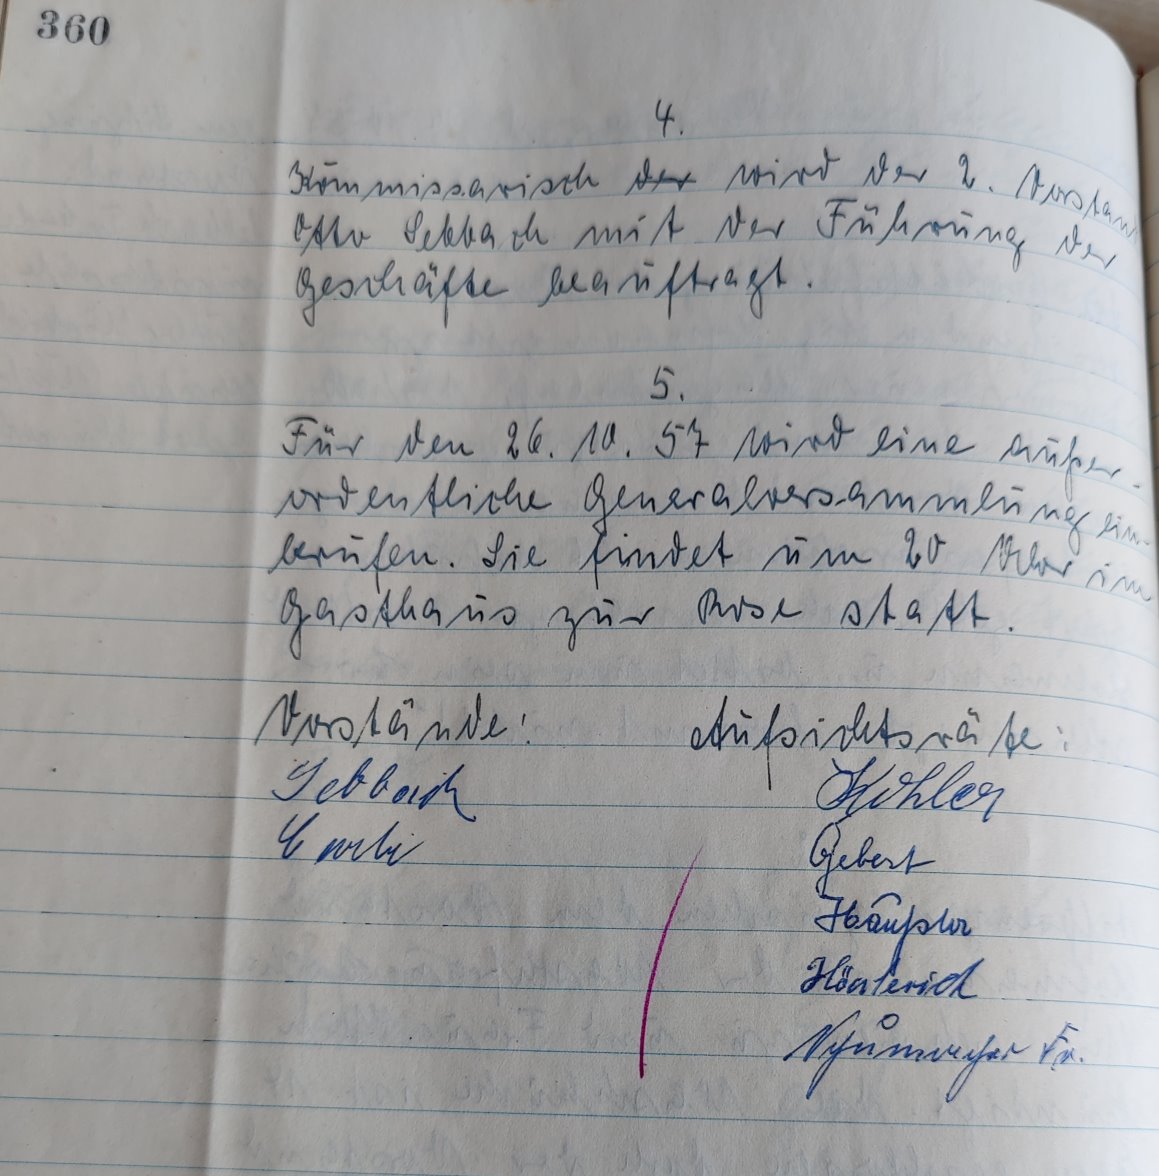 360
4.
Kommissarisch der wird der 2. Vorstand
Otto Sebbach mit der Führung der
Geschäfte beauftragt.
5.
Für den 26. 10. 57 wird eine außer-
ordentliche Generalversammlung ein-
berufen. Sie findet um 20 Uhr im
Gasthaus zur Rose statt.
Vorstände: Aufsichtsräte:
Sebbach Köhler
Gebert